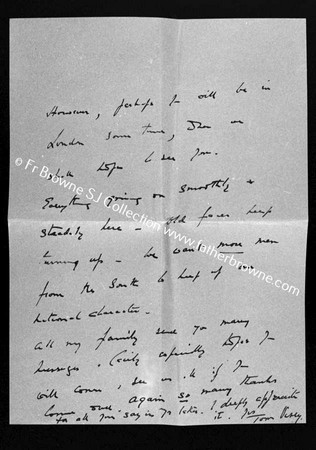 However, perhaps I will be in
London some time, & then we
shall hope to see you.
Everything going on smoothly &
steadily here - old faces keep
turning up - We want more men
from the South to keep up our
national character -
All my family send you many
messages. especially hope I
will come, & see us if I
come and again so many thanks
for all you say in yr letter. I deeply appreciate
it. Yrs
© Fr Browne SJ Collection www.fatherbrowne.com